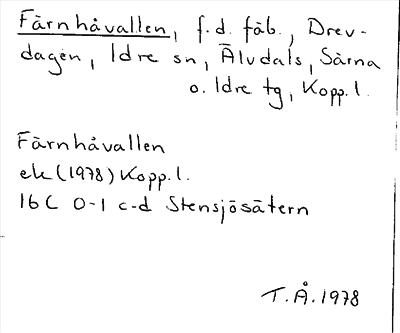 Färnhåvallen, f.d. fäb., Drev-
dagen, Idre sn, Älvdals, Särna
o. Idre tg, Kopp.l.
Färnhåvallen
ek (1978) Kopp.l.
16C 0-1 c-d Stensjösätern
T.Å. 1978